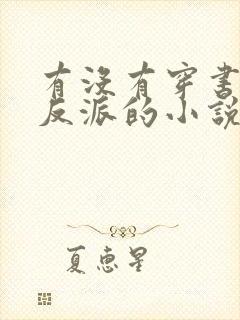 有没有穿书
反派的小説
夏惠星